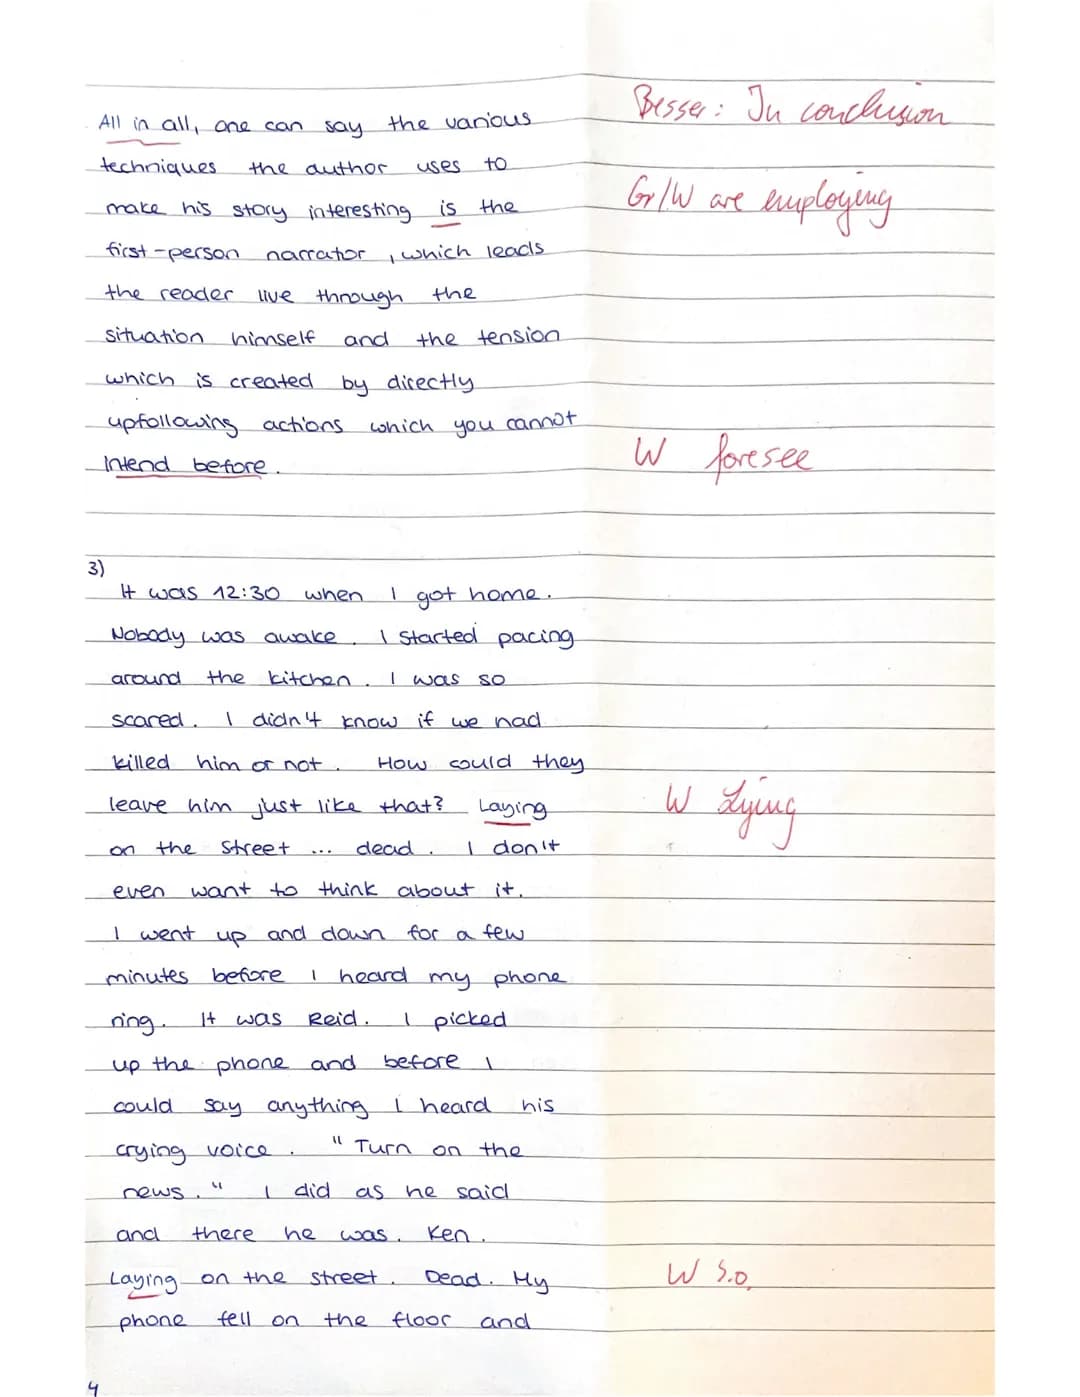 All in all, one can say the various
Besser: In conclusion
techniques the author uses to
make his story interesting is the
Gr/W are employing
first-person narrator, which leads
the reader live through the
situation himself and the tension
which is created by directly
upfollowing actions which you cannot
intend before.
W foresee
3)
It was 12:30 when I got home.
Nobody was awake. I started pacing
around the kitchen. I was so
scared. I didn't know if we had
killed him or not. How could they
leave him just like that? Laying
W Lying
on the street ... dead. I don't
even want to think about it.
I went up and down for a few
minutes before I heard my phone
ring. It was Reid. I picked
up the phone and before I
could say anything I heard his
crying voice. "Turn on the
news." I did as he said
and there he was. Ken.
Laying on the street. Dead. My
W s.o.
phone fell on the floor and
4